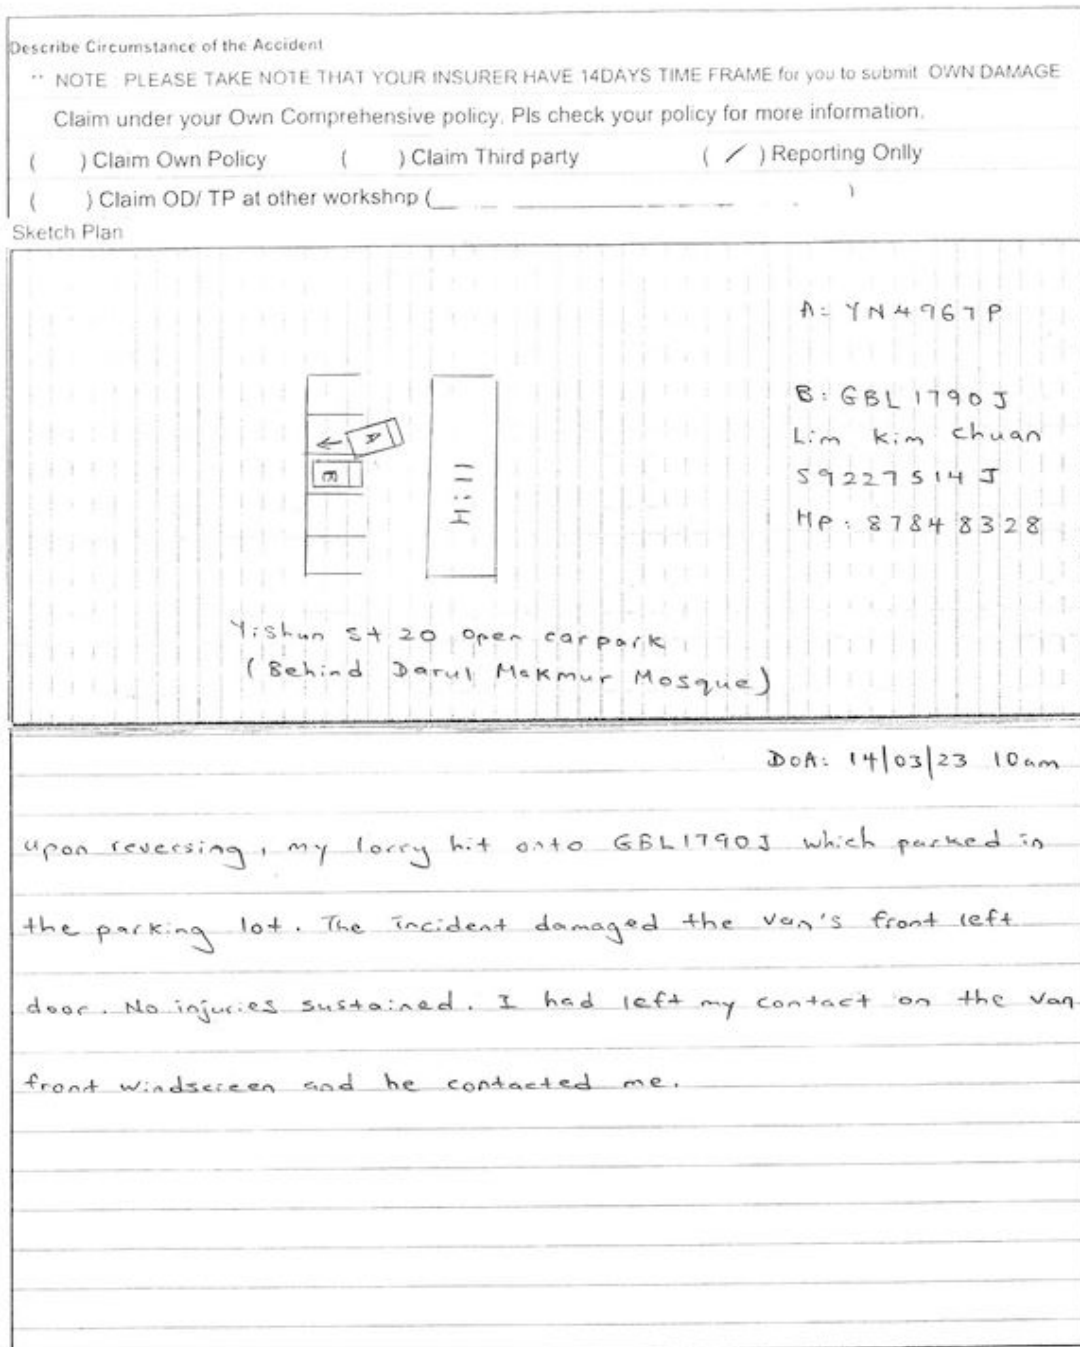 Describe Circumstance of the Accident
** NOTE PLEASE TAKE NOTE THAT YOUR INSURER HAVE 14DAYS TIME FRAME for you to submit OWN DAMAGE
Claim under your Own Comprehensive policy. Pls check your policy for more information.
( ) Claim Own Policy ( ) Claim Third party ( / ) Reporting Onlly
( ) Claim OD/ TP at other workshop (________________)
Sketch Plan
A: YN4967P
B: GBL1790J
Lim Kim Chuan
S9227514J
HP: 8784 8328
A
B
Yishun St 20 open carpark
(Behind Darul Makmur Mosque)
DOA: 14/03/23 10am
upon reversing, my lorry hit onto GBL1790J which parked in
the parking lot. The incident damaged the van's front left
door. No injuries sustained. I had left my contact on the van
front windscreen and he contacted me.